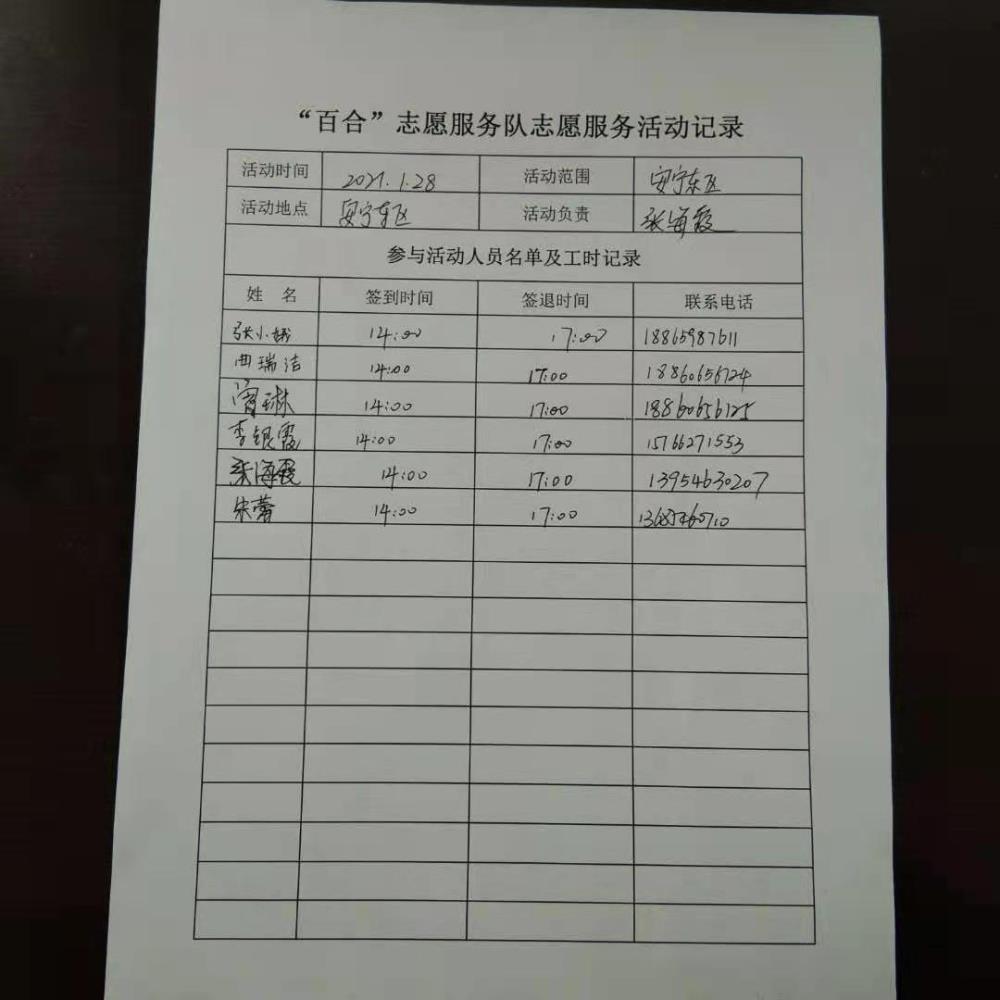 “百合”志愿服务队志愿服务活动记录
活动时间 2021.1.28 活动范围 安宁东区
活动地点 安宁东区 活动负责 张海霞
参与活动人员名单及工时记录
姓 名 签到时间 签退时间 联系电话
张小娥 14:00 17:00 18865987611
曲瑞洁 14:00 17:00 18860656724
琳 14:00 17:00 18860656125
李银霞 14:00 17:00 15766271553
张海霞 14:00 17:00 13954630207
朱蕾 14:00 17:00